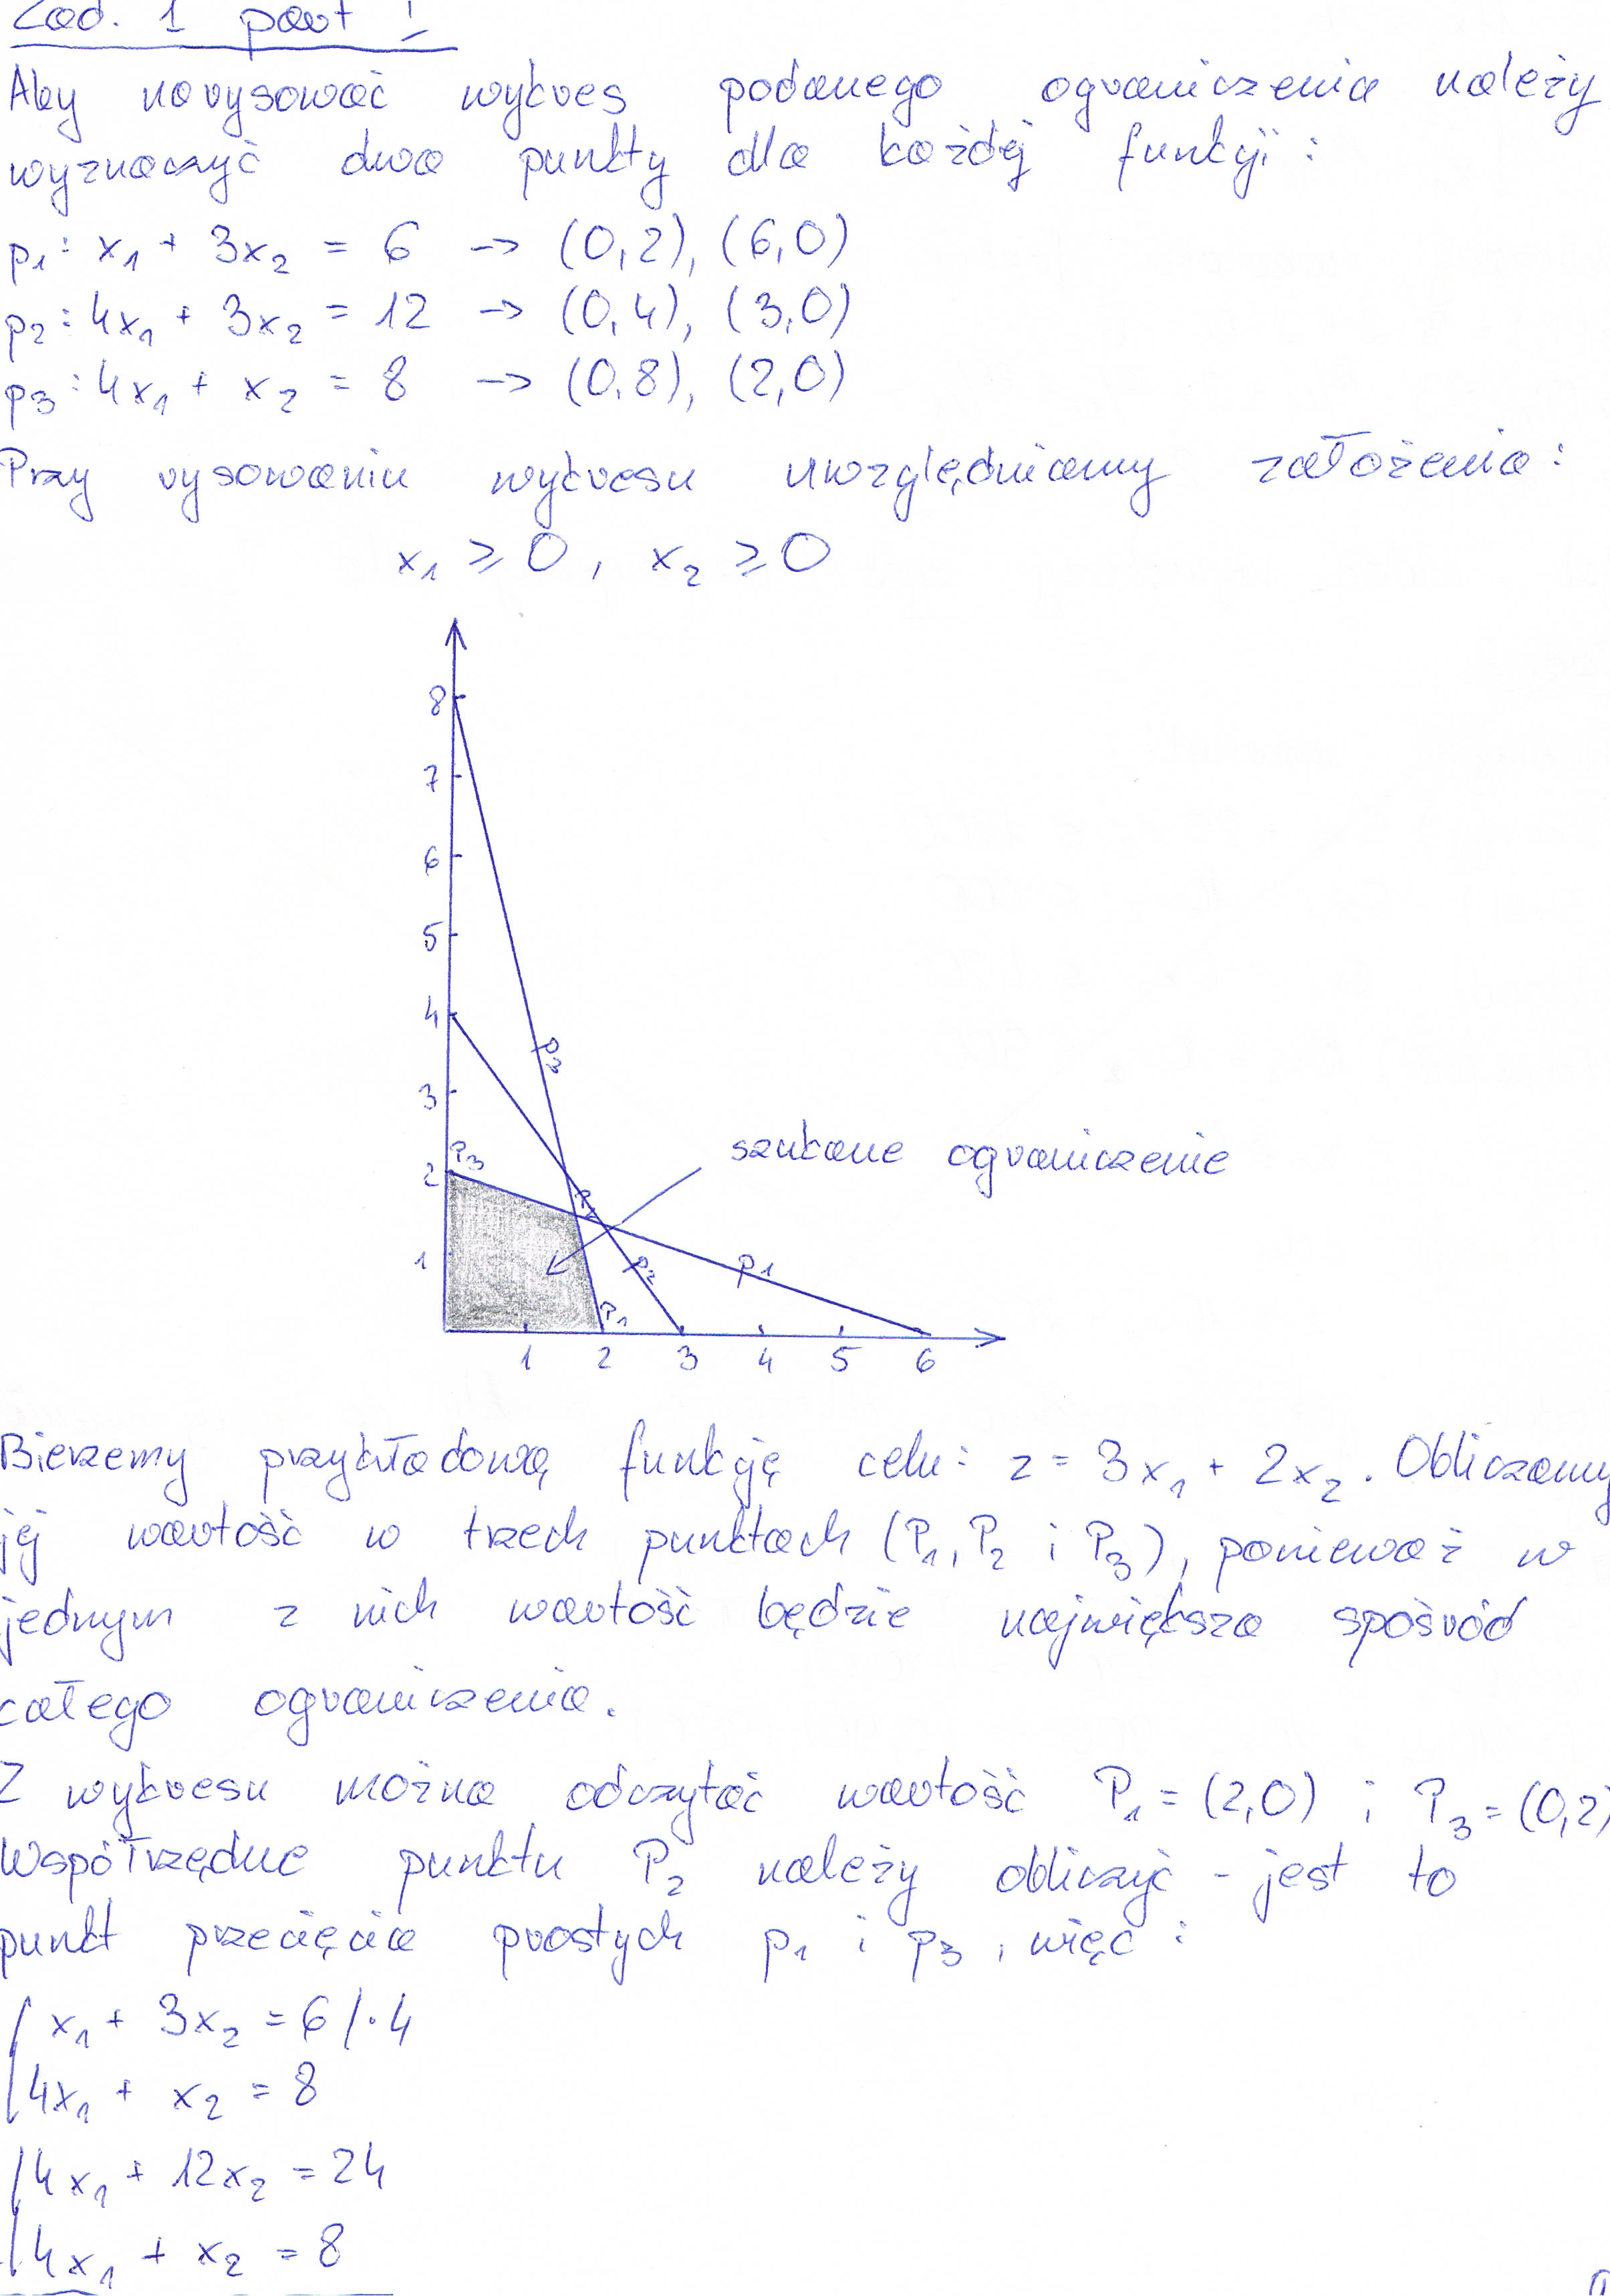 Zad. 1 part I
Aby narysować wykres podanego ograniczenia należy
wyznaczyć dwa punkty dla każdej funkcji :
p₁ : x₁ + 3x₂ = 6 -> (0,2), (6,0)
p₂ : 4x₁ + 3x₂ = 12 -> (0,4), (3,0)
p₃ : 4x₁ + x₂ = 8 -> (0,8), (2,0)
Przy rysowaniu wykresu uwzględniamy założenia :
x₁ ⩾ 0 , x₂ ⩾ 0
8
7
6
5
4
p₃
3
szukane ograniczenie
P₃
2
P₂
1
p₂
p₁
P₁
1 2 3 4 5 6
Bierzemy przykładową funkcję celu : z = 3x₁ + 2x₂ . Obliczamy
jej wartość w trzech punktach (P₁, P₂ i P₃), ponieważ w
jednym z nich wartość będzie największa spośród
całego ograniczenia.
Z wykresu można odczytać wartość P₁ = (2,0) i P₃ = (0,2)
Współrzędne punktu P₂ należy obliczyć - jest to
punkt przecięcia prostych p₁ i p₃ , więc :
x₁ + 3x₂ = 6 /·4
4x₁ + x₂ = 8
4x₁ + 12x₂ = 24
4x₁ + x₂ = 8